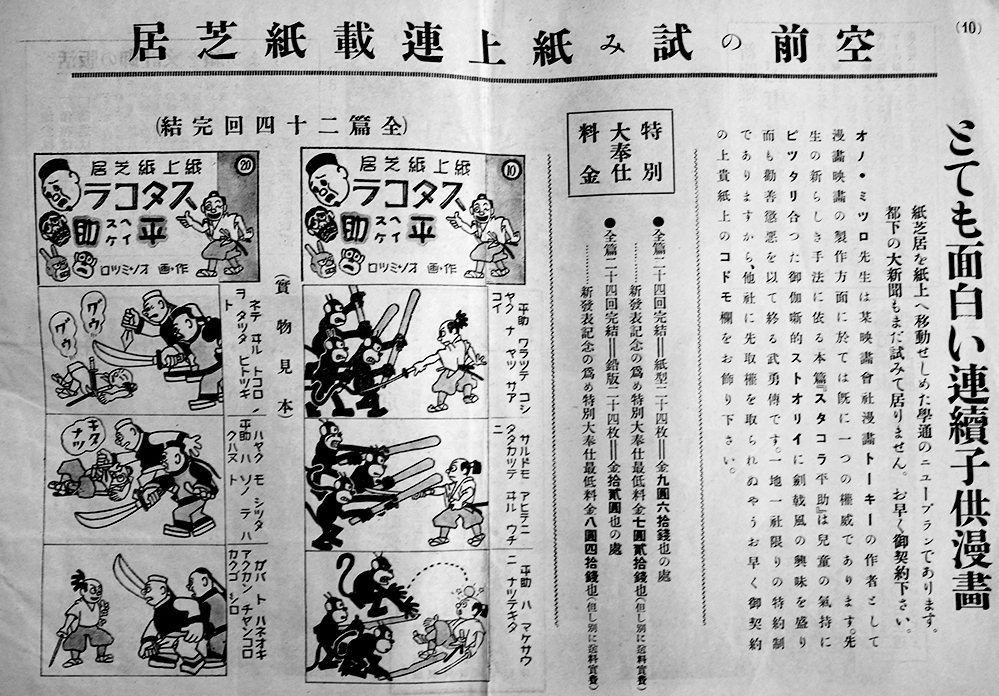 (10)
空前の試み紙上連載紙芝居
とても面白い連續子供漫畫
紙芝居を紙上へ移動せしめた學通のニュープランであります。
都下の大新聞もまだ試みて居りません。お早く御契約下さい。
オノ・ミツロ先生は某映畫會社漫畫トーキーの作者として
漫畫映畫の製作方面に於ては既に一つの權威であります。先
生の新らしき手法に依る本篇『スタコラ平助』は兒童の氣持に
ピツタリ合つた御伽噺的ストオリイに劍戟風の興味を盛り
而も勸善懲惡を以て終る武勇傳です。一地一社限りの特約制
でありますから、他社に先取權を取られぬやうお早く御契約
の上貴紙上のコドモ欄をお飾り下さい。
特別
大奉仕
料金
●全篇二十四回完結＝紙型二十四枚＝金九圓六拾錢也の處
……新發表記念の爲め特別大奉仕最低料金七圓貳拾錢也(但し別に送料實費)
●全篇二十四回完結＝鉛版二十四枚＝金拾貳圓也の處
……新發表記念の爲め特別大奉仕最低料金八圓四拾錢也(但し別に送料實費)
(全篇二十四回完結)
(實物見本)
10
紙上紙芝居
スタコラ
平助
ヘイスケ
作・画 オノ・ミツロ
平助 ワラツテ コシ
ヤクナ ヤツ サア
コイ
サルドモ アヒテニ
タタカツテ ヰル ウチ
ニ
平助 ハ マケサウ
ニ ナツテキタ
20
紙上紙芝居
スタコラ
平助
ヘイスケ
作・画 オノ・ミツロ
ネテ ヰル トコロノ
ヲ タツタ ヒトツキ
ト
グウ
グウ
ハヤク モ シツタ
平助 ハ ソノ テ ハ
クハヌ ト
キタナツ
ガバ ト ハネオキ
アクカン チヤンコロ
カクゴ シロ